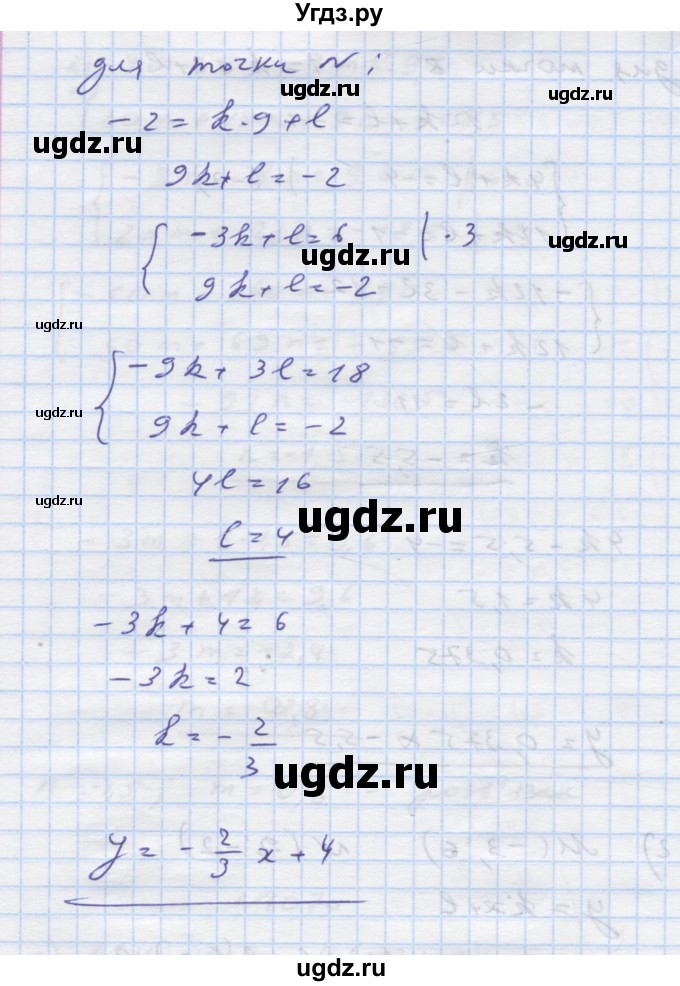 Угдз.ру
для точки N;
-2 = k·9 + l
ugdz.ru
ugdz.ru
ugdz.ru
9k + l = -2
{ -3k + l = 6 | ·3
ugdz.ru
ugdz.ru
9k + l = -2
ugdz.ru
{ -9k + 3l = 18
ugdz.ru
9k + l = -2
4l = 16
ugdz.ru
ugdz.ru
l = 4
-3k + 4 = 6
-3k = 2
k = - 2/3
ugdz.ru
y = - 2/3 x + 4
ugdz.ru
ugdz.ru